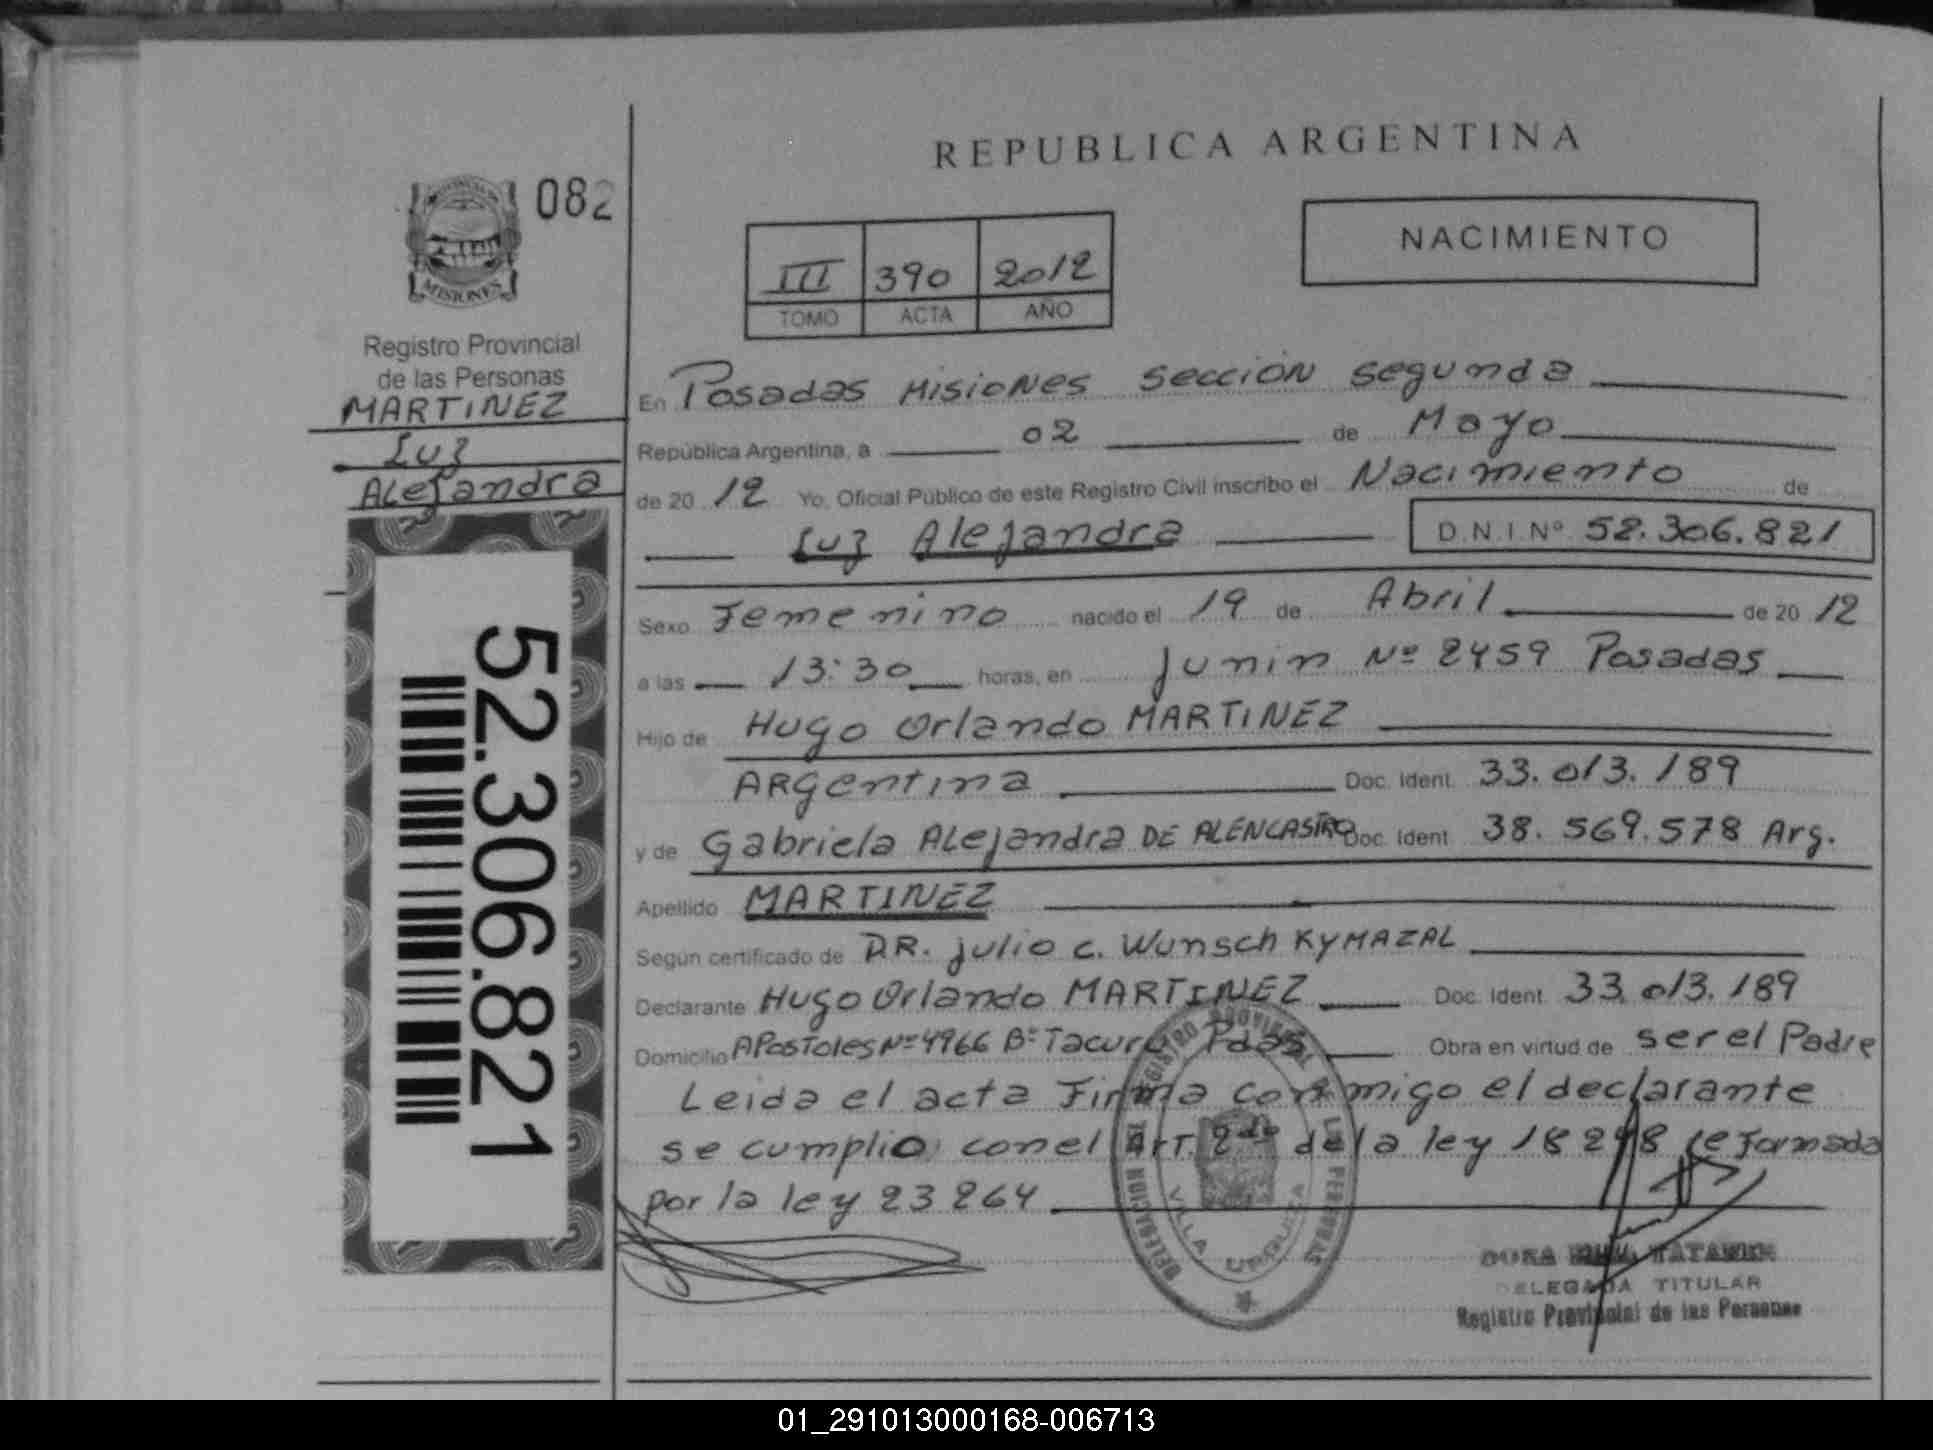 REPUBLICA ARGENTINA
082
NACIMIENTO
III 390 2012
TOMO ACTA AÑO
MISIONES
Registro Provincial
de las Personas
MARTINEZ
Luz
Alejandra
52.306.821
En Posadas Misiones Sección Segunda
República Argentina, a 02 de Mayo
de 20 12 Yo, Oficial Público de este Registro Civil inscribo el Nacimiento de
Luz Alejandra D.N.I. Nº 52.306.821
Sexo Femenino nacido el 19 de Abril de 20 12
a las 13:30 horas, en Junin Nº 2459 Posadas
Hijo de Hugo Orlando MARTINEZ
Argentina Doc. Ident. 33.013.189
y de Gabriela Alejandra DE ALENCASTRO Doc. Ident. 38.569.578 Arg.
Apellido MARTINEZ
Según certificado de DR. Julio C. Wunsch KYMAZAL
Declarante Hugo Orlando MARTINEZ Doc. Ident. 33.013.189
Domicilio Apostoles Nº 4966 Bº Tacuru Pdas Obra en virtud de ser el Padre
Leida el acta Firma conmigo el declarante
se cumplio con el Art. 2do de la ley 18248 reformada
por la ley 23264
REGISTRO PROVINCIAL DE LAS PERSONAS
DELEGACION
VILLA URQUIZA
DELEGADA TITULAR
Registro Provincial de las Personas
01_291013000168-006713